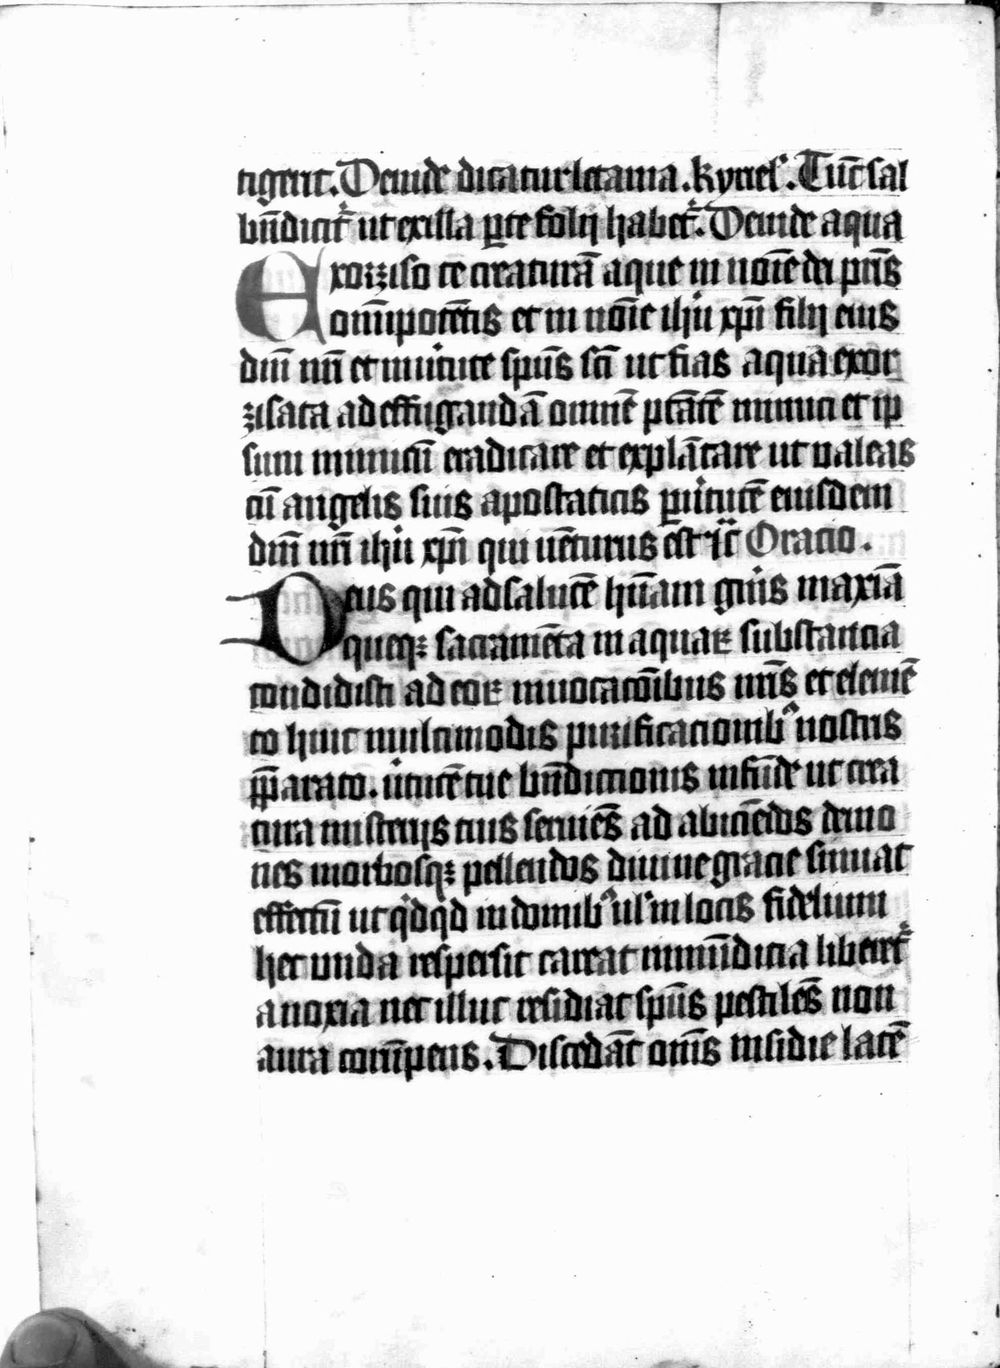 tigerit. Deinde dicatur letania. kyriel'. Tūc sal
bn̄dicit᷑ ut ex illa p̱te folij habet᷑. Deinde aqua
Exorziso te creaturā aque in noīe dei pr̄is
om̄ipotētis et in noīe ih̄u xp̄i filij eius
dn̄i nr̄i et in uirtute sp̄us sc̄i ut fias aqua exor
zisata ad effugandā omnē ptātē inimici et ip
sum inimicū eradicare et explātare ut ualeas
cū angelis suis apostaticis p̱ uirtutē eiusdem
dn̄i nr̄i ih̄u xp̄i qui uēturus ēst ⁊c̄ Oracio.
Deus qui ad salutē hūam gn̄is maxīa
queqꝫ sacramēta in aquaꝝ substancia
condidisti ad eoꝝ inuocacōībus nr̄is et elemē
to huic multimodis purificacionibꝰ nostris
p̄parato. uirtutē tue bn̄dictionis infūde ut crea
tura misterijs tuis seruiēs ad abiciēdos demo
nes morbosqꝫ pellendos diuine gracie sumat
effectū ut qͥdqͥd in domibꝰ ul' in locis fidelium
hec unda resperserit careat inmūdicia liberet᷑
a noxia nec illuc resideat sp̄us pestilēs non
aura corrūpens. Discedāt om̄s insidie latē